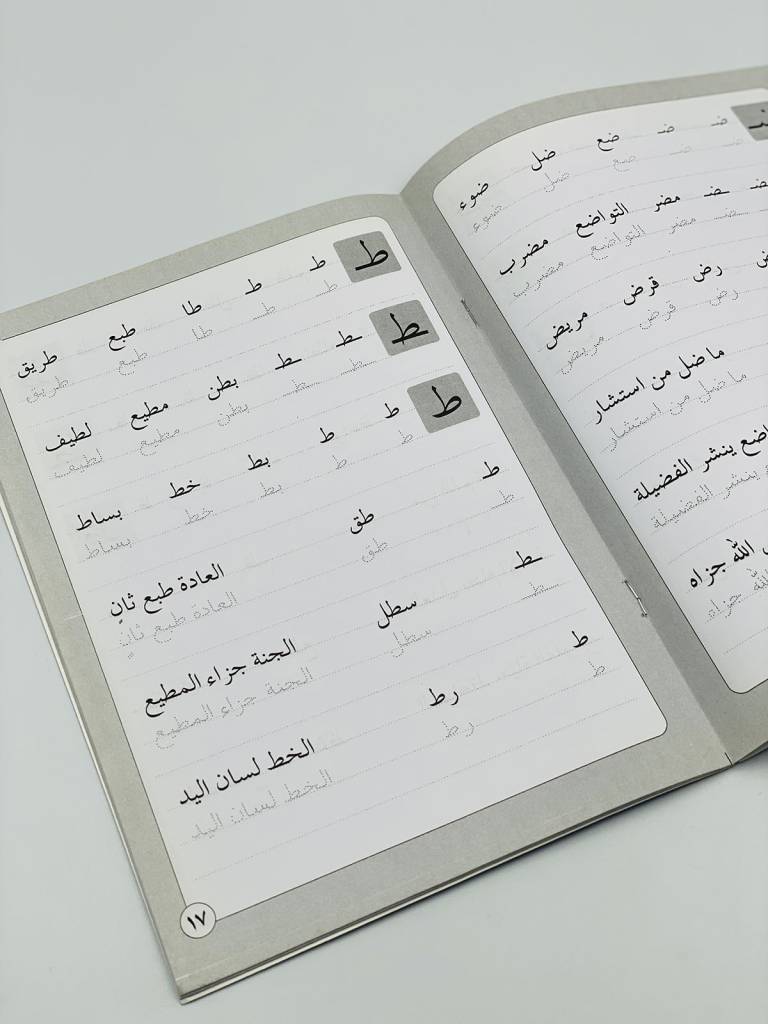 ضـ ضـ ضع ضل ضوء
ضـ ضـ ضع ضل ضوء
ـضـ ـضـ مضر التواضع مضرب
ـضـ مضر التواضع مضرب
ض رض قرض مريض
رض قرض مريض
ما ضل من استشار
ما ضل من استشار
ينشر الفضيلة
ينشر الفضيلة
الله جزاه
الله جزاه
ط
طـ طـ طا طبع طريق
طـ طـ طا طبع طريق
ـطـ
ـطـ ـطـ بطن مطيع لطيف
ـطـ ـطـ بطن مطيع لطيف
ط
ط ط بط خط بساط
ط ط بط خط بساط
طـ طق العادة طبع ثانٍ
طـ طق العادة طبع ثانٍ
ـطـ سطل الجنة جزاء المطيع
ـطـ سطل الجنة جزاء المطيع
ط رط الخط لسان اليد
ط رط الخط لسان اليد
١٧